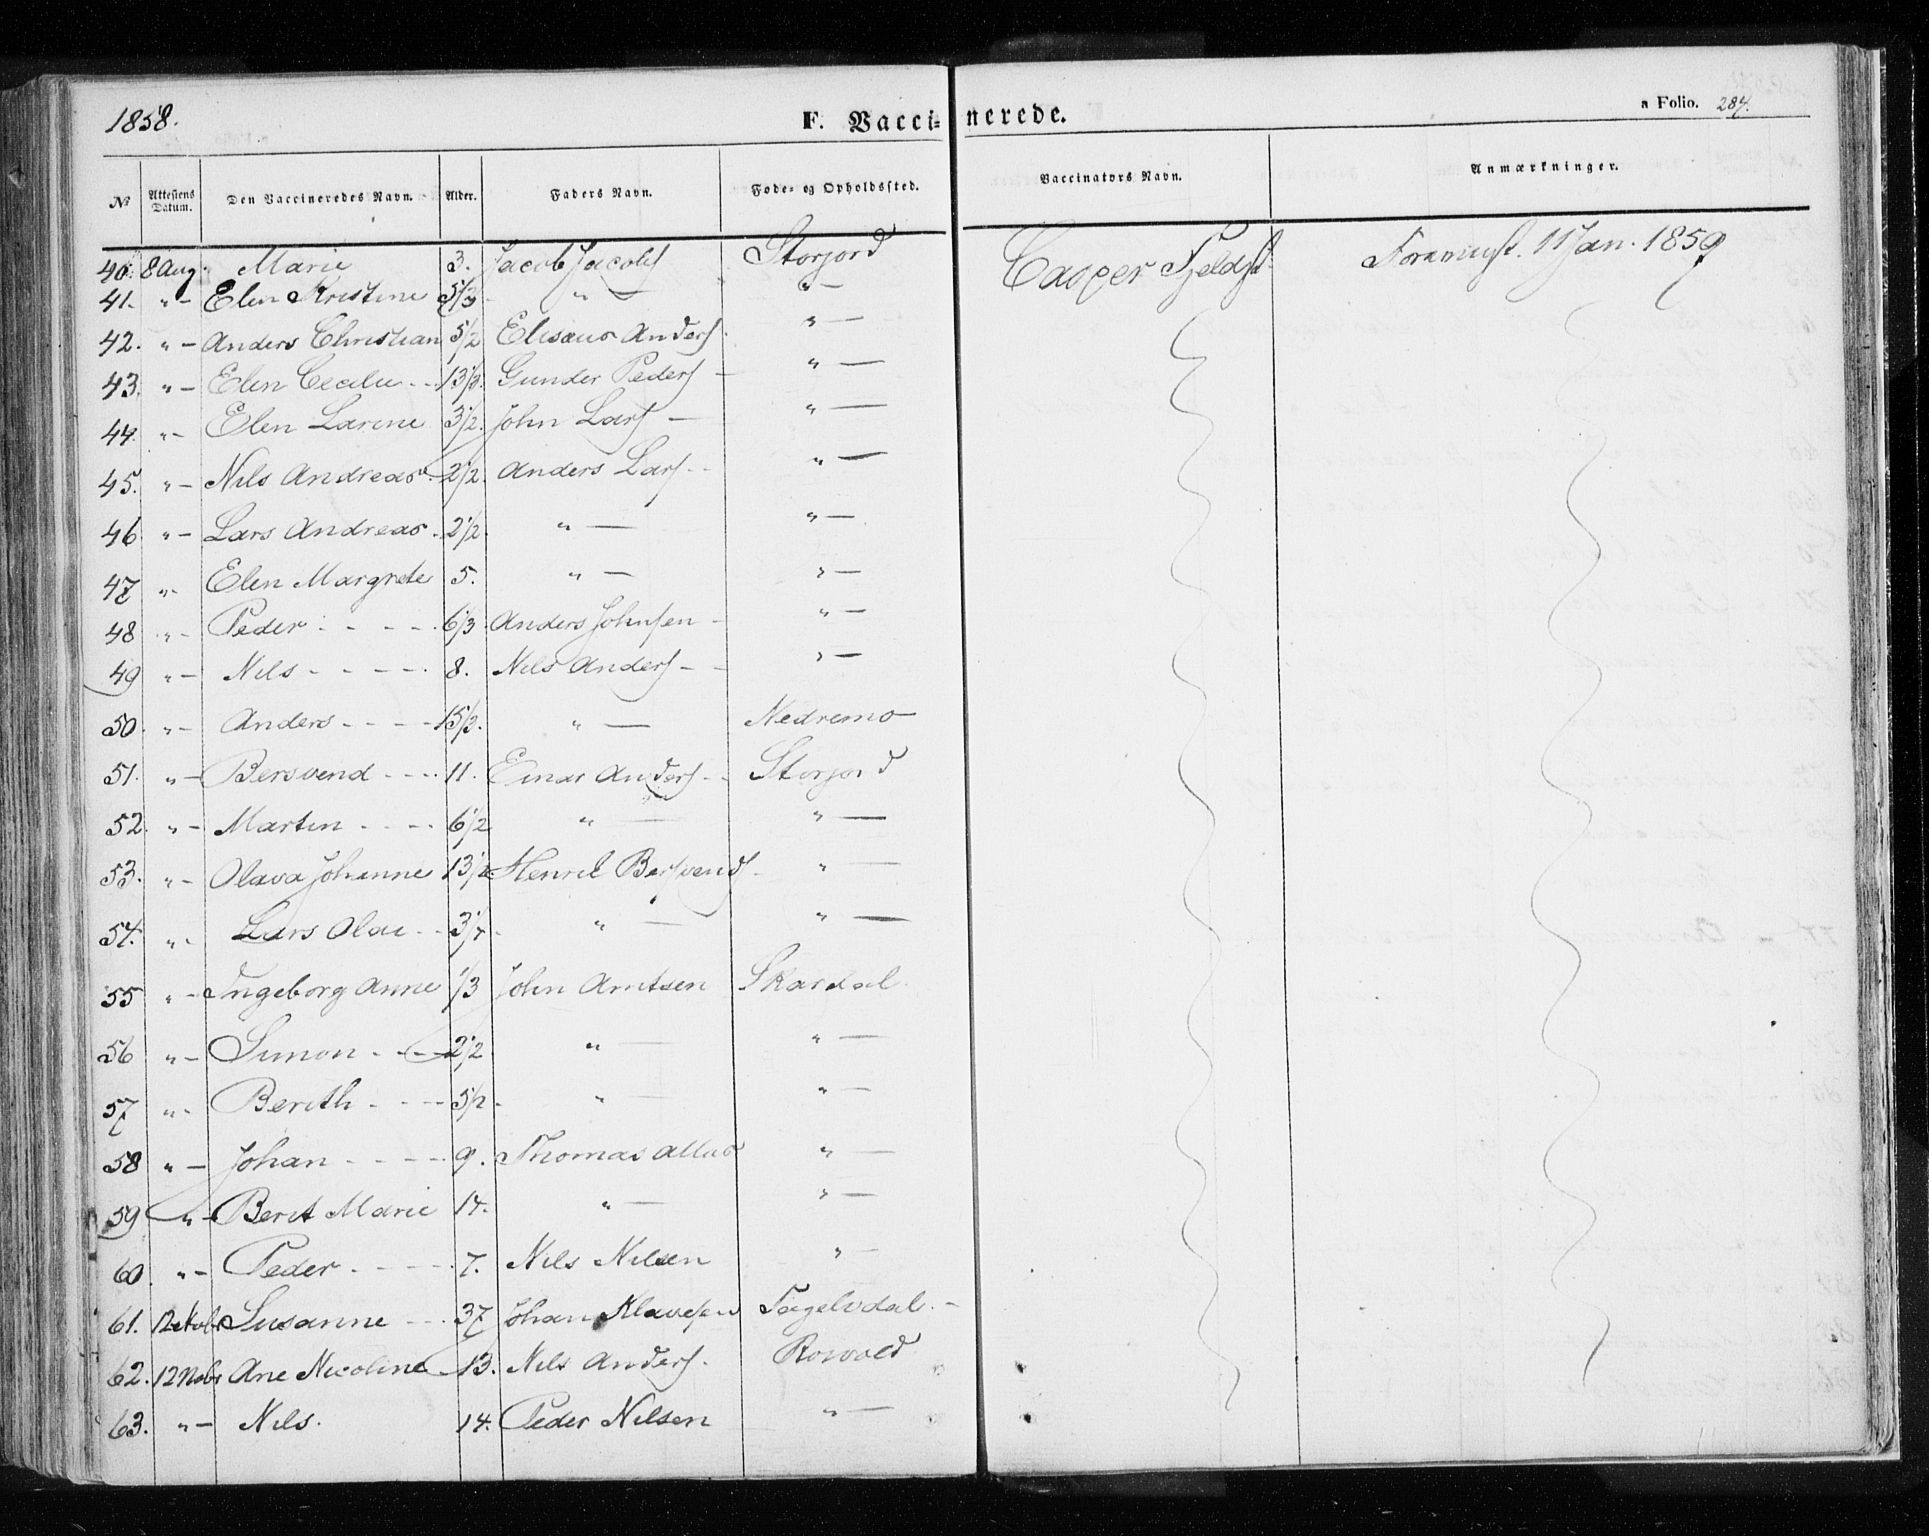 1858. F. Vaccinerede. a Folio. 284.
No Attestens Datum. Den Vaccineredes Navn. Alder. Faders Navn. Føde- og Opholdssted. Vaccinators Navn. Anmærkninger.
40. 8 Aug. Marie 3. Jacob Jacobs Storjord Casper Fjeldst 11 Jan. 1859
41. " — Elen Kristine " — " —
42. " — Anders Christian 5/2 Elisæus Anders. " —
43. " — Elen Cecilie - - Gunder Peders — " —
44. " — Elen Larine 3 1/2. John Lars — " —
45. " — Nils Andreas 2 1/2. Anders Lars - - " —
46 " — Lars Andreas. 2 1/2. " — " —
47 " - Elen Margrete 5. " — " —
48 " - Peder - - - - 6/3. Anders Johnsen - " —
49 " — Nils - - - - - 8. Nils Anders - - " —
50. " - Anders - - - - " — Nedremo
51. " — Bersvend - - - - 11. Einar Anders - - Storjord
52. " — Martin - - - - 6 1/2 " — " —
53. " - Olava Johanne 13 1/2 Henrik Bersvend " —
54. " - Lars Olai - - " — " —
55 " — Ingeborg Anne 1/3 John Arntsen Skardal.
56 " — Simon - - - 2 1/2 " — " —
57 " - Berith - - - - 5/2 - " — " —
58 " — Johan - - - - - 9. Thomas " —
59 " — Berit Marie 14. " — " —
60. " — Peder - - - - - 7. Nils Nilsen " —
61. Susanne - - - 37 Johan Klavesen Fagelvdal. -
62. 12 Nobr Ane Nicoline 13. Nils Anders. Rowold
63. " — Nils. 14. Peder Nilsen " —